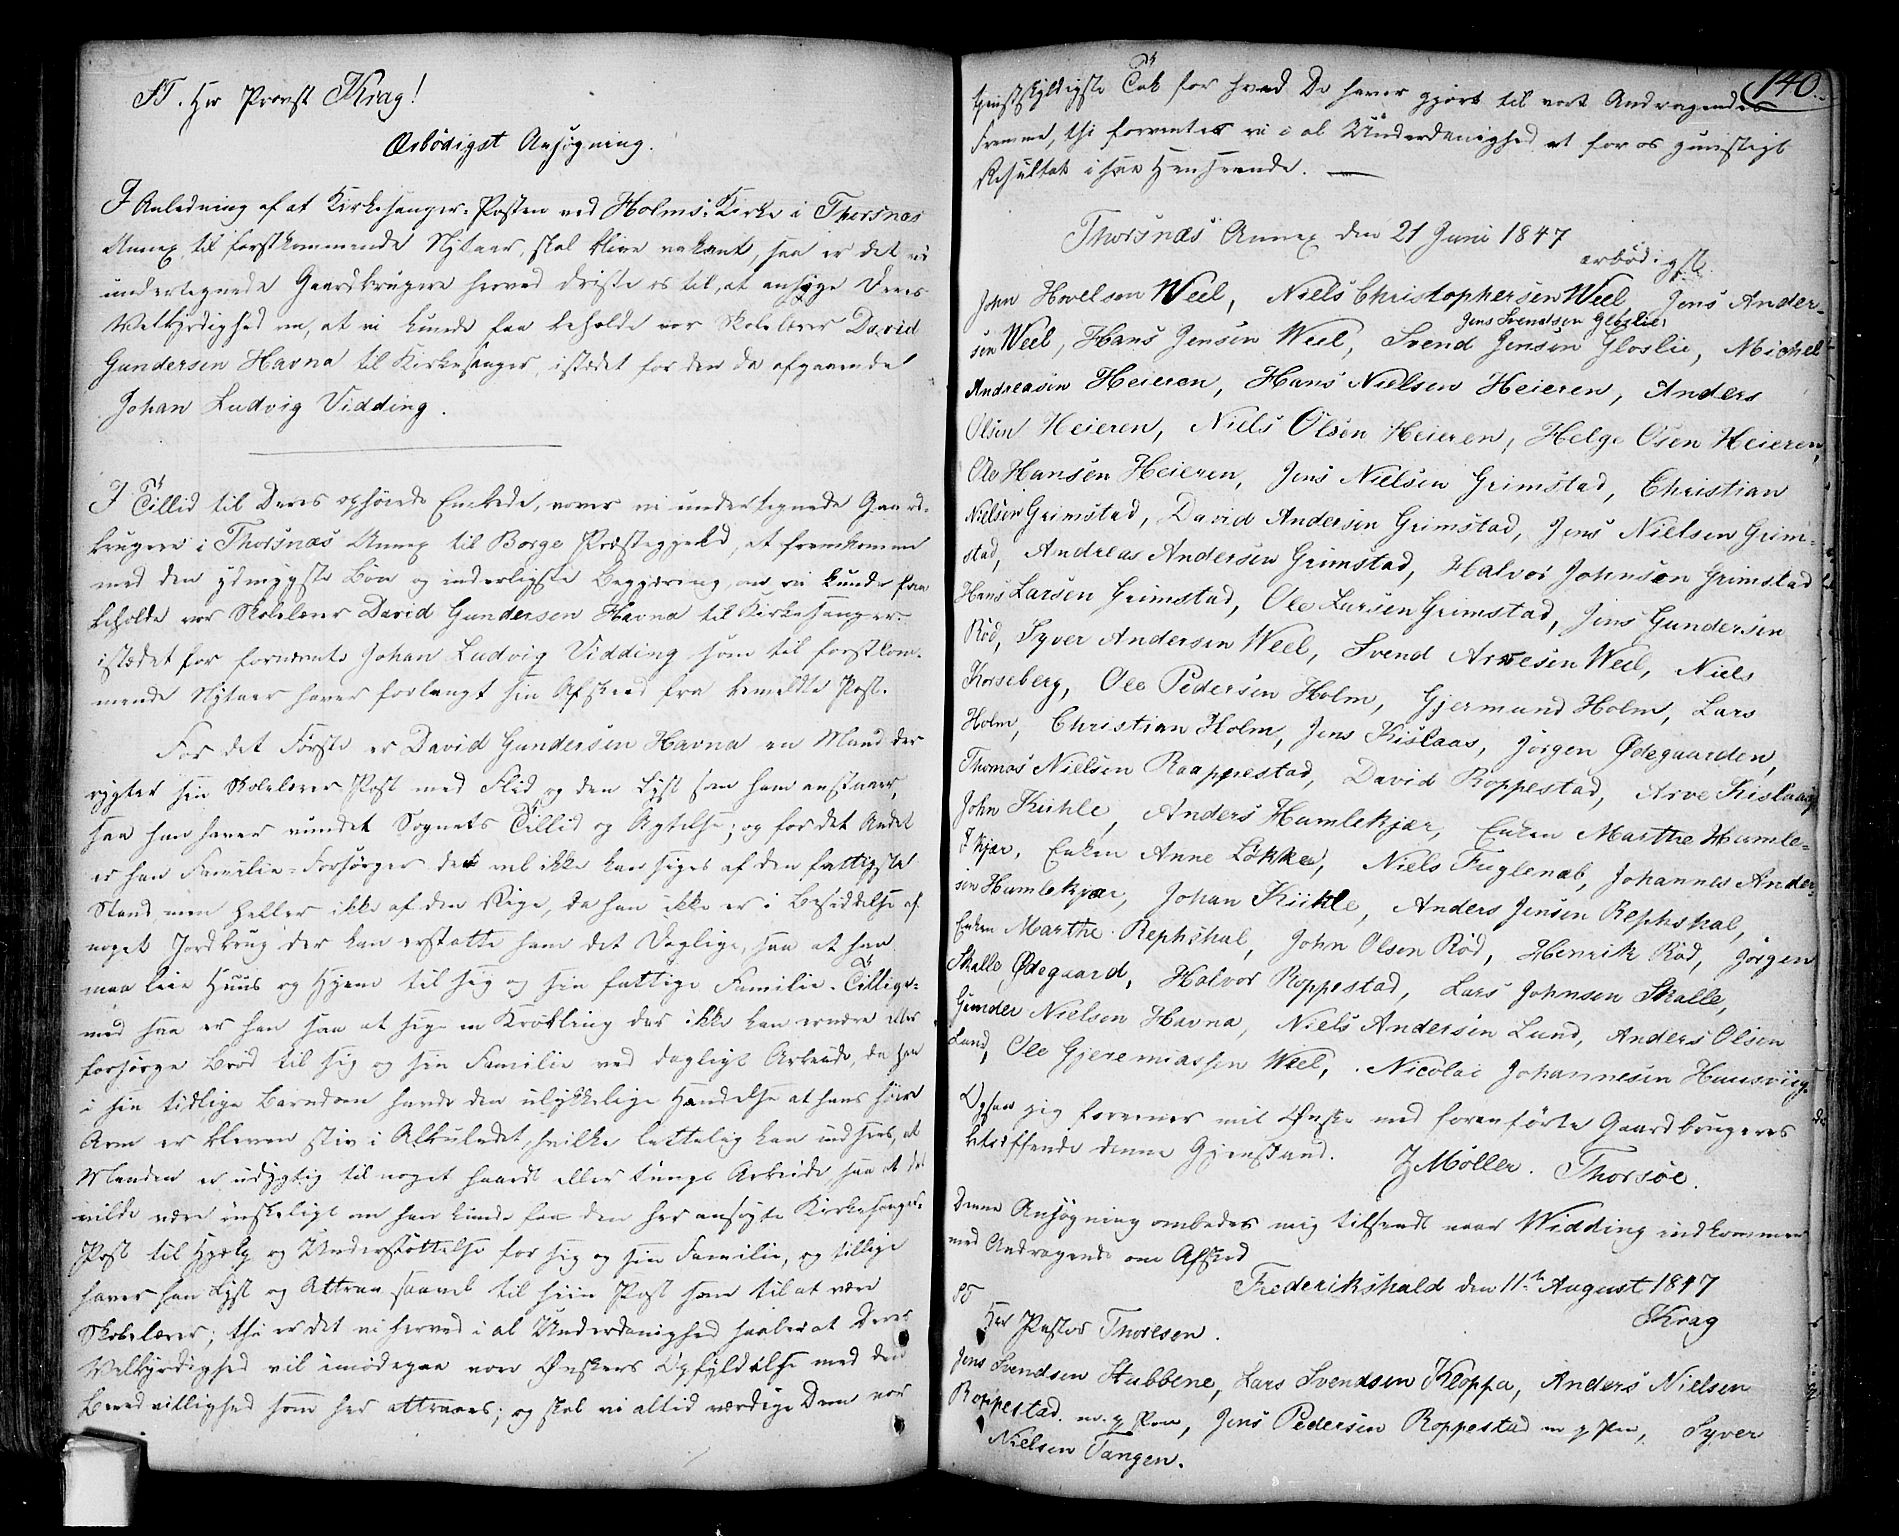 ST. Hr Provst Krag!
Ærbödigst Ansøgning.
I Anledning af at Kirkesanger-Posten ved Holms-Kirke i Thorsnæs
Annex til forstkommende Nytaar, skal blive vakant, saa er det vi
undertegnede Gaardbrugere herved driste os til, at ansøge Deres
Velbyrdighed om, at vi kunde faa beholde vor Skolelærer David
Gundersen Havna til Kirkesanger, istædet for den da afgaaende
Johan Ludvig Vidding.
I Tillid til Deres ophöiede Embede, vover vi undertegnede Gaard-
brugere i Thorsnæs Annex til Borge Præstegjeld, at fremkomme
med den ydmygste Bön og inderligste Begjæring, om vi kunde faa
beholde vor Skolelærer David Gundersen Havna til Kirkesanger
istædet for fornævnte Johan Ludvig Vidding som til forstkom-
mende Nytaar haver forlangt sin Afsked fra bemeldte Post.
For det Förste er David Gundersen Havna en Mand der
rygter sin Skolelærer Post med Flid og den Lyst som ham anstaaer,
saa han haver vundet Sognets Tillid og Agtelse; og for det Andet
er han Familie-Forsörger det vel ikke kan siges af den fattigste
Stand, men heller ikke af den Rige, da han ikke er i Besiddelse af
noget Jordbrug der kan erstatte ham det Daglige, saa at han
maa leie Huus og Hjem til sig og sin fattige Familie. Tillige-
med saa er han saa at sige en Kröbling der ikke kan ernære eller
forsörge Bröd til sig og sin Familie ved dagligt Arbeide, da han
i sin tidlige Barndom havde den ulykkelige Hændelse at hans höire
Arm er bleven stiv i Albuledet, hvilke lettelig kan indsees, at
Manden er udygtig til noget haardt eller tungt Arbeide saa at det
vilde være ønskeligt om han kunde faa den her ansøgte Kirkesanger-
Post til Hjelp og Understöttelse for sig og sin Familie, og tillige
haver han Lyst og Attraa saavel til hiin Post som til at være
Skolelærer; thi er det vi herved i al Underdanighed haaber at Deres
Velbyrdighed vil imødegaa vore Ønskers Opfyldelse med den
Beredvillighed som her attraaes; og skal vi altid værdige Dem vor
140.
skyldigste Tak for hvad De haver gjort til vort Andragendes
Fremme, thi forventer vi i al Underdanighed et for os gunstigt
Resultat i saa Henseende. —
Thorsnæs Annex den 21 Juni 1847
ærbödigst.
John Hovelsen Weel, Niels Christophersen Weel, Jens Ander-
Jens Svendsen Gloslie,
sen Weel, Hans Jensen Weel, Svend Jensen Gloslie, Michel
Andreasen Heieren, Hans Nielsen Heieren, Anders
Olsen Heieren, Niels Olsen Heieren, Helge Osen Heieren,
Ole Hansen Heieren, Jens Nielsen Grimstad, Christian
Nielsen Grimstad, David Andersen Grimstad, Jens Nielsen Grim-
stad, Andreas Andersen Grimstad, Halvor Johnson Grimstad
Hans Larsen Grimstad, Ole Larsen Grimstad, Jens Gundersen
Röd, Syver Andersen Weel, Svend Arvesen Weel, Niels
Korseberg, Ole Pedersen Holm, Gjermund Holm, Lars
Holm, Christian Holm, Jens Kislaas, Jörgen Ødegaarden,
Thomas Nielsen Raappestad, David Roppestad, Arve Kislaas
John Kühle, Anders Humlekjær, Enken Marthe Humle-
kjær, Enken Anne Lökke, Niels Fugleneb, Johannes Ander-
sen Humlekjær, Johan Kühle, Anders Jensen Rephshal,
Enken Marthe Rephshal, John Olsen Röd, Henrik Röd, Jörgen
Skalle Ødegaard, Halvor Roppestad, Lars Johnsen Skalle,
Gunder Nielsen Havna, Niels Andersen Lund, Anders Olsen
Lund, Ole Gjeremiassen Weel, Nicolai Johannesen Huusviig.
Ogsaa jeg forener mit Ønske med foranförte Gaardbrugeres
betræffende denne Gjenstand. Z Møller. Thorsøe.
Denne Ansøgning ombedes mig tilsendt naar Widding indkommer
med Andragende om Afsked
Frederikshald den 11te August 1847
Krag
ST
Her Pastor Thoresen.
Jens Svendsen Stubbene, Lars Svendsen Kloppa, Anders Nielsen
Roppestad m. p Pen, Jens Pedersen Roppestad m p Pen, Syver
Nielsen Tangen.